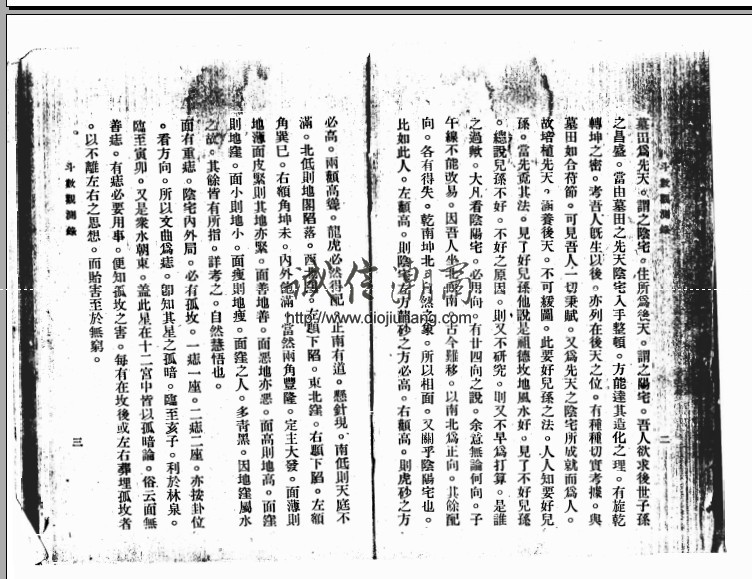 斗數觀測錄
二
墓田爲先天。謂之陰宅。住所爲後天。謂之陽宅。吾人欲求後世子孫
之昌盛。當由墓田之先天陰宅入手整頓。方能達其造化之理。有旋乾
轉坤之密。考吾人旣生以後。亦列在後天之位。有種種切實考據。與
墓田如合符節。可見吾人一切秉賦。又爲先天之陰宅所成就而爲人。
故培植先天。涵養後天。不可緩圖。此要好兒孫之法。人人知要好兒
孫。當先覓其法。見了好兒孫他說是祖德坟地風水好。見了不好兒孫
。總說兒孫不好。不好之原因。則又不研究。則又不早爲打算。是誰
之過歟。大凡看陰陽宅。必用向。有廿四向之說。余意無論何向。子
午線不能改易。因吾人坐北向南。古今難移。以南北爲正向。其餘配
向。各有得失。乾南坤北。自然之象。所以相面。又關乎陰陽宅也。
比如此人。左顴高。則陰宅左方龍砂之方必高。右顴高。則虎砂之方
必高。兩顴高聳。龍虎必然得配。正南有道。懸針現。南低則天庭不
滿。北低則地閣陷落。西北窪。左頤下陷。東北窪。右頤下陷。左額
角巽巳。右額角坤未。內外飽滿。當然兩角豐隆。定主大發。面薄則
地薄面皮緊則其地亦緊。面善地善。面惡地亦惡。面高則地高。面窪
則地窪。面小則地小。面瘦則地瘦。面窪之人。多靑黑。因地窪屬水
之故。其餘皆有所指。詳考之。自然慧悟也。
面有重痣。陰宅內外局。必有孤坟。一痣一座。二痣二座。亦按卦位
。看方向。所以文曲爲痣。卽知其星之孤暗。臨至亥子。利於林泉。
臨至寅卯。又是衆水朝東。蓋此星在十二宮中皆以孤暗論。俗云面無
善痣。有痣必要用事。便知孤坟之害。每有在坟後或左右葬埋孤坟者
。以不離左右之思想。而貽害至於無窮。
斗數觀測錄
三
誠信淨齋
http://www.diojiudiang.com